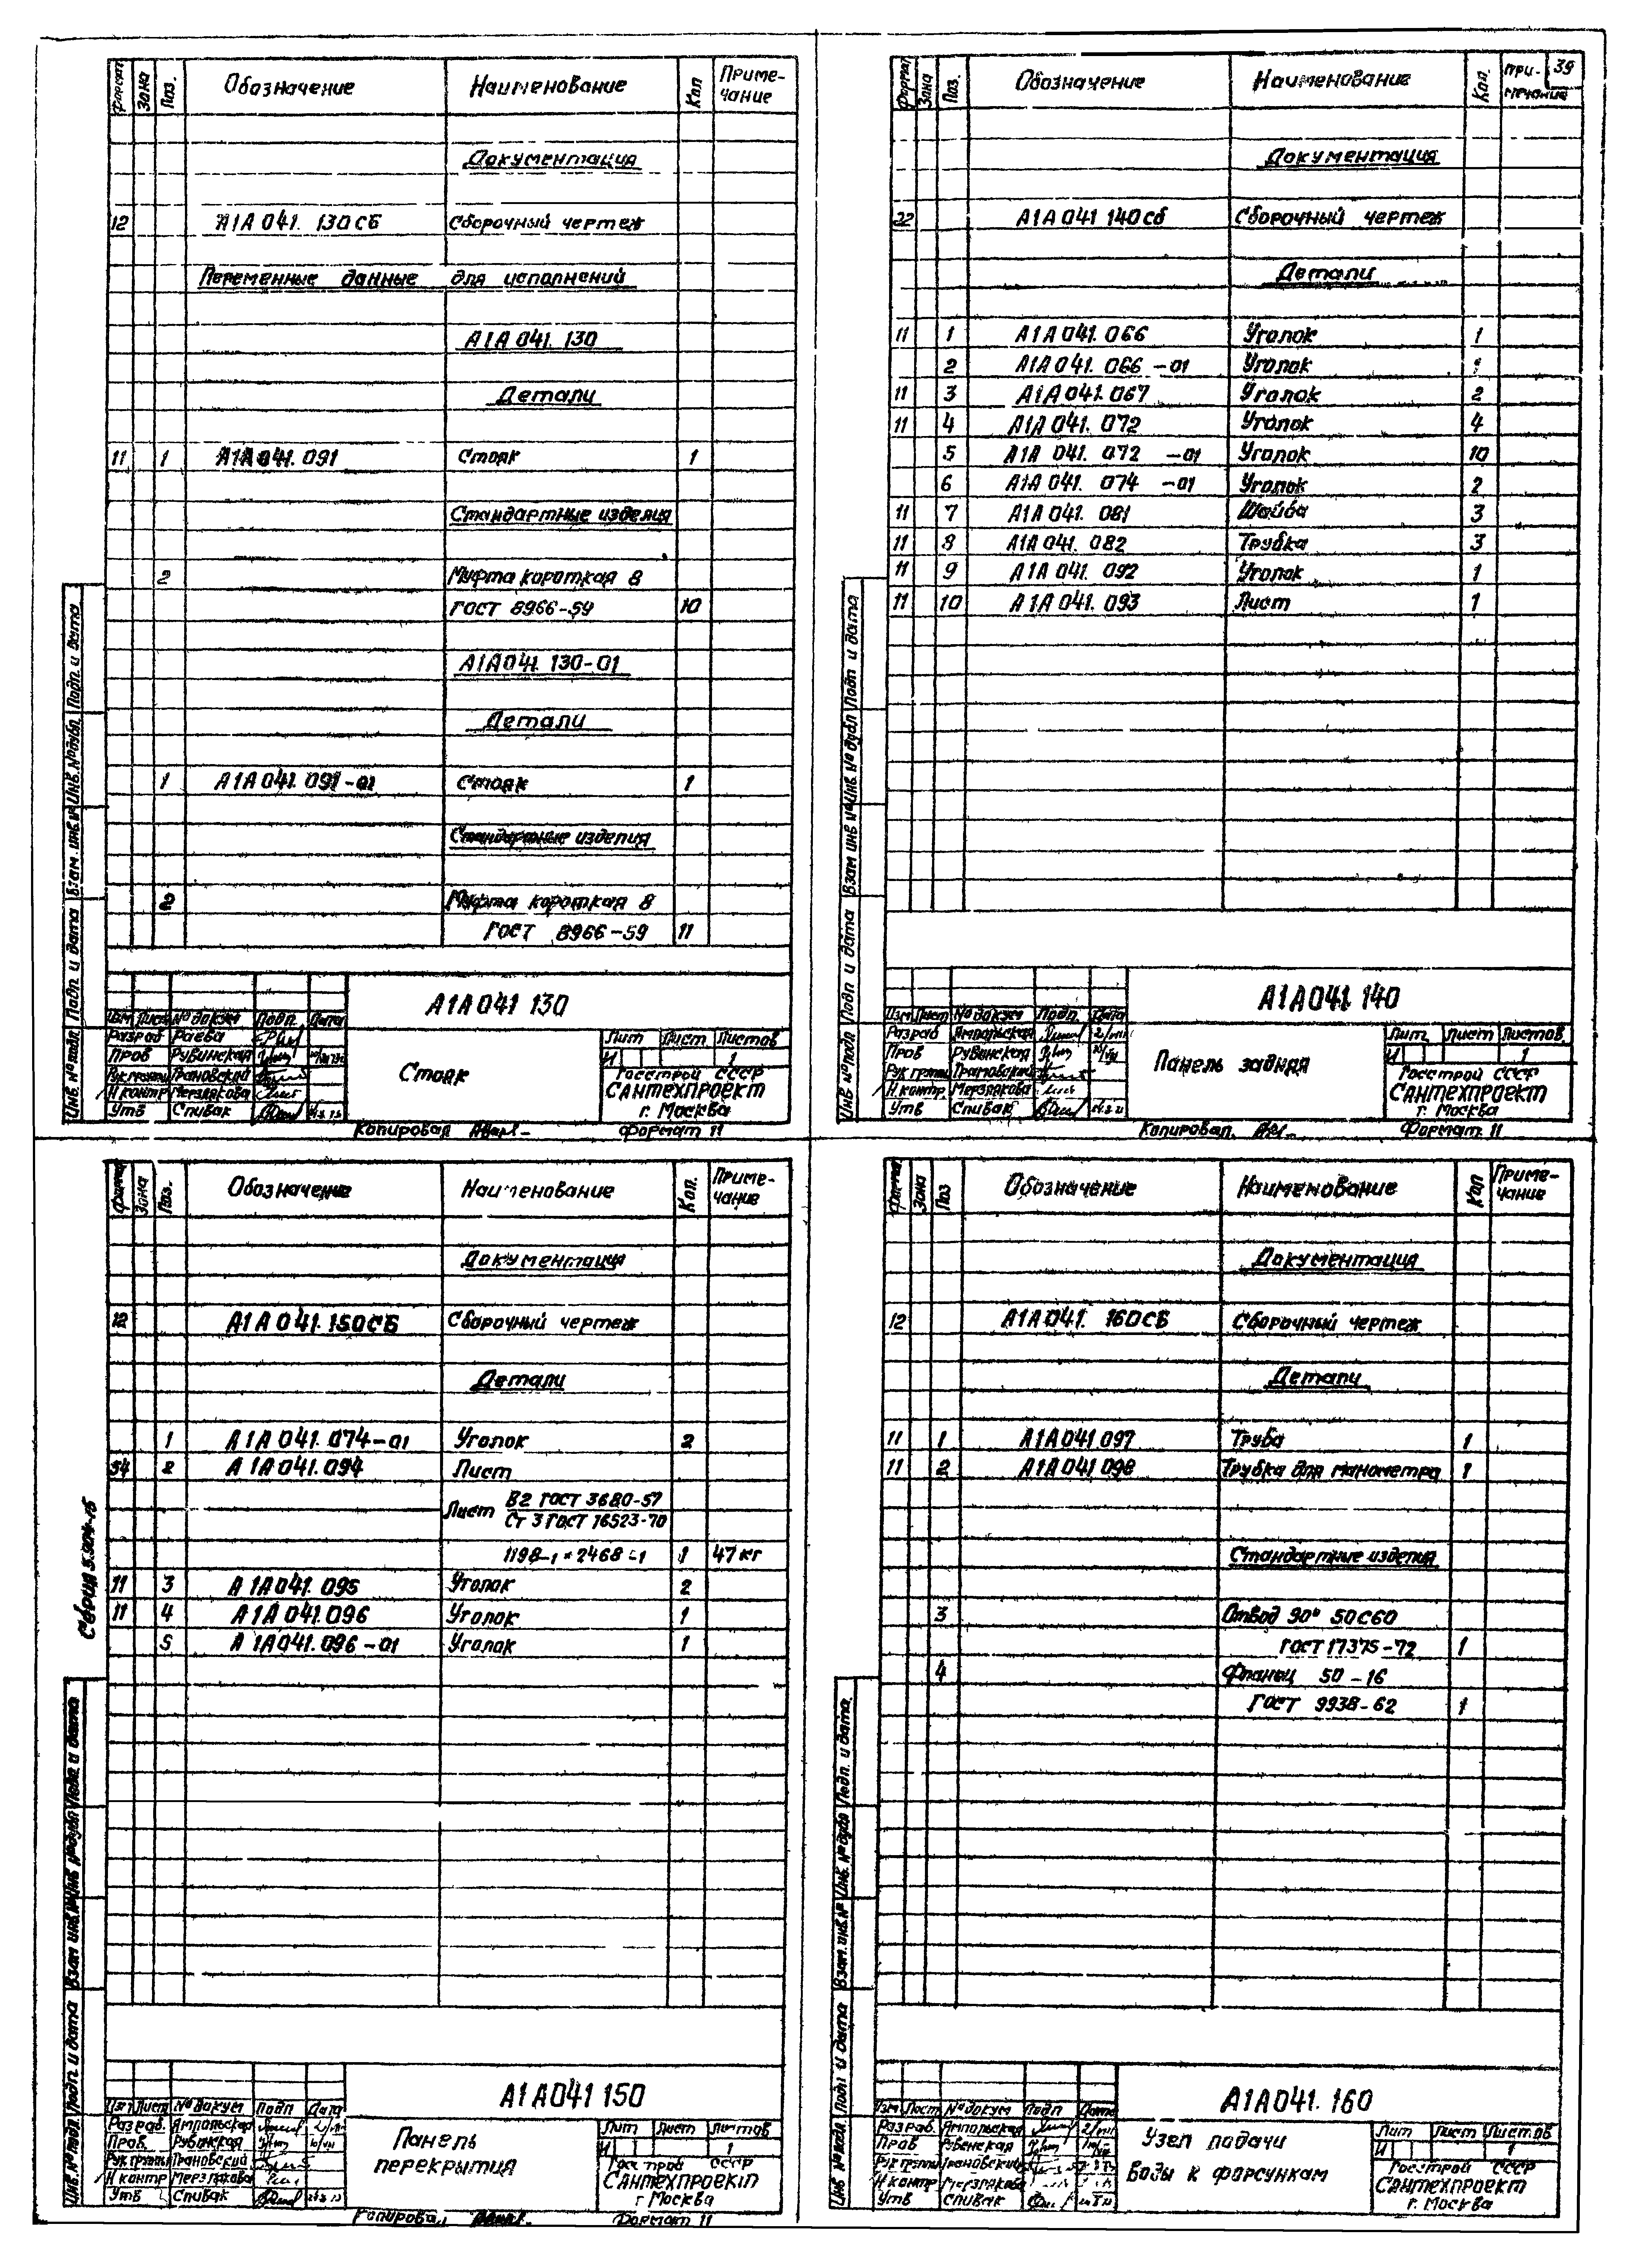 Формат Зона Поз. Обозначение Наименование Кол Приме-
чание
Документация
12 А1А 041. 130 СБ Сборочный чертеж
Переменные данные для исполнений
А1А 041. 130
Детали
11 1 А1А 041. 091 Стояк 1
Стандартные изделия
2 Муфта короткая 8
ГОСТ 8966-59 10
А1А 041. 130-01
Детали
1 А1А 041. 091-01 Стояк 1
Стандартные изделия
2 Муфта короткая 8
ГОСТ 8966-59 11
Инв № подл Подп и дата Взам. инв № Инв. № дубл. Подп. и дата
А1А 041 130
Изм Лист № докум Подп. Дата
Разраб Раева
Пров Рувинская
Рук группы Грановский
Н контр Мерзлякова
Утв Спивак
Стояк
Лит Лист Листов
И 1
Госстрой СССР
САНТЕХПРОЕКТ
г. Москва
Копировал Формат 11
39
Формат Зона Поз. Обозначение Наименование Кол. При-
мечание
Документация
22 А1А 041 140 сб Сборочный чертеж
Детали
11 1 А1А 041. 066 Уголок 1
2 А1А 041. 066 -01 Уголок 1
11 3 А1А 041. 067 Уголок 2
11 4 А1А 041. 072 Уголок 4
5 А1А 041. 072 -01 Уголок 10
6 А1А 041. 074 -01 Уголок 2
11 7 А1А 041. 081 Шайба 3
11 8 А1А 041. 082 Трубка 3
11 9 А1А 041. 092 Уголок 1
11 10 А1А 041. 093 Лист 1
Инв № подл Подп и дата Взам инв № Инв. № дубл Подп и дата
А1А 041. 140
Изм Лист № докум Подп. Дата
Разраб Ямпольская
Пров Рувинская
Рук группы Грановский
Н контр. Мерзлякова
Утв Спивак
Панель задняя
Лит. Лист Листов
И 1
Госстрой СССР
САНТЕХПРОЕКТ
г. Москва
Копировал. Формат 11
Формат Зона Поз. Обозначение Наименование Кол. Приме-
чание
Документация
12 А1А 041. 150 СБ Сборочный чертеж
Детали
1 А1А 041. 074-01 Уголок 2
54 2 А1А 041. 094 Лист
Лист В2 ГОСТ 3680-57
Ст 3 ГОСТ 16523-70
1198-1 × 2468-1 1 47 кг
11 3 А1А 041. 095 Уголок 2
11 4 А1А 041. 096 Уголок 1
5 А1А 041. 096-01 Уголок 1
Серия 5.904-15
Инв № подл Подп. и дата Взам инв № Инв № дубл Подп и дата
А1А 041 150
Изм Лист № докум Подп Дата
Разраб. Ямпольская
Пров. Рувинская
Рук группы Грановский
Н контр Мерзлякова
Утв Спивак
Панель
перекрытия
Лит Лист Листов
И 1
Госстрой СССР
САНТЕХПРОЕКТ
г Москва
Копировал Формат 11
Формат Зона Поз Обозначение Наименование Кол Приме-
чание
Документация
12 А1А 041. 160 СБ Сборочный чертеж
Детали
11 1 А1А 041 097 Труба 1
11 2 А1А 041 098 Трубка для манометра 1
Стандартные изделия
3 Отвод 90° 50С60
ГОСТ 17375-72 1
4 Фланец 50-16
ГОСТ 9938-62 1
Инв № подл. Подп и дата Взам. инв № Инв. № дубл Подп. и дата
А1А 041. 160
Изм Лист № докум Подп Дата
Разраб. Ямпольская
Пров Рувинская
Рук группы Грановский
Н контр Мерзлякова
Утв Спивак
Узел подачи
воды к форсункам
Лит Лист Листов
И 1
Госстрой СССР
САНТЕХПРОЕКТ
г. Москва